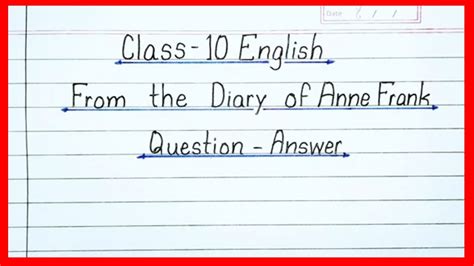 Date / /
Class-10 English
From the Diary of Anne Frank
Question - Answer